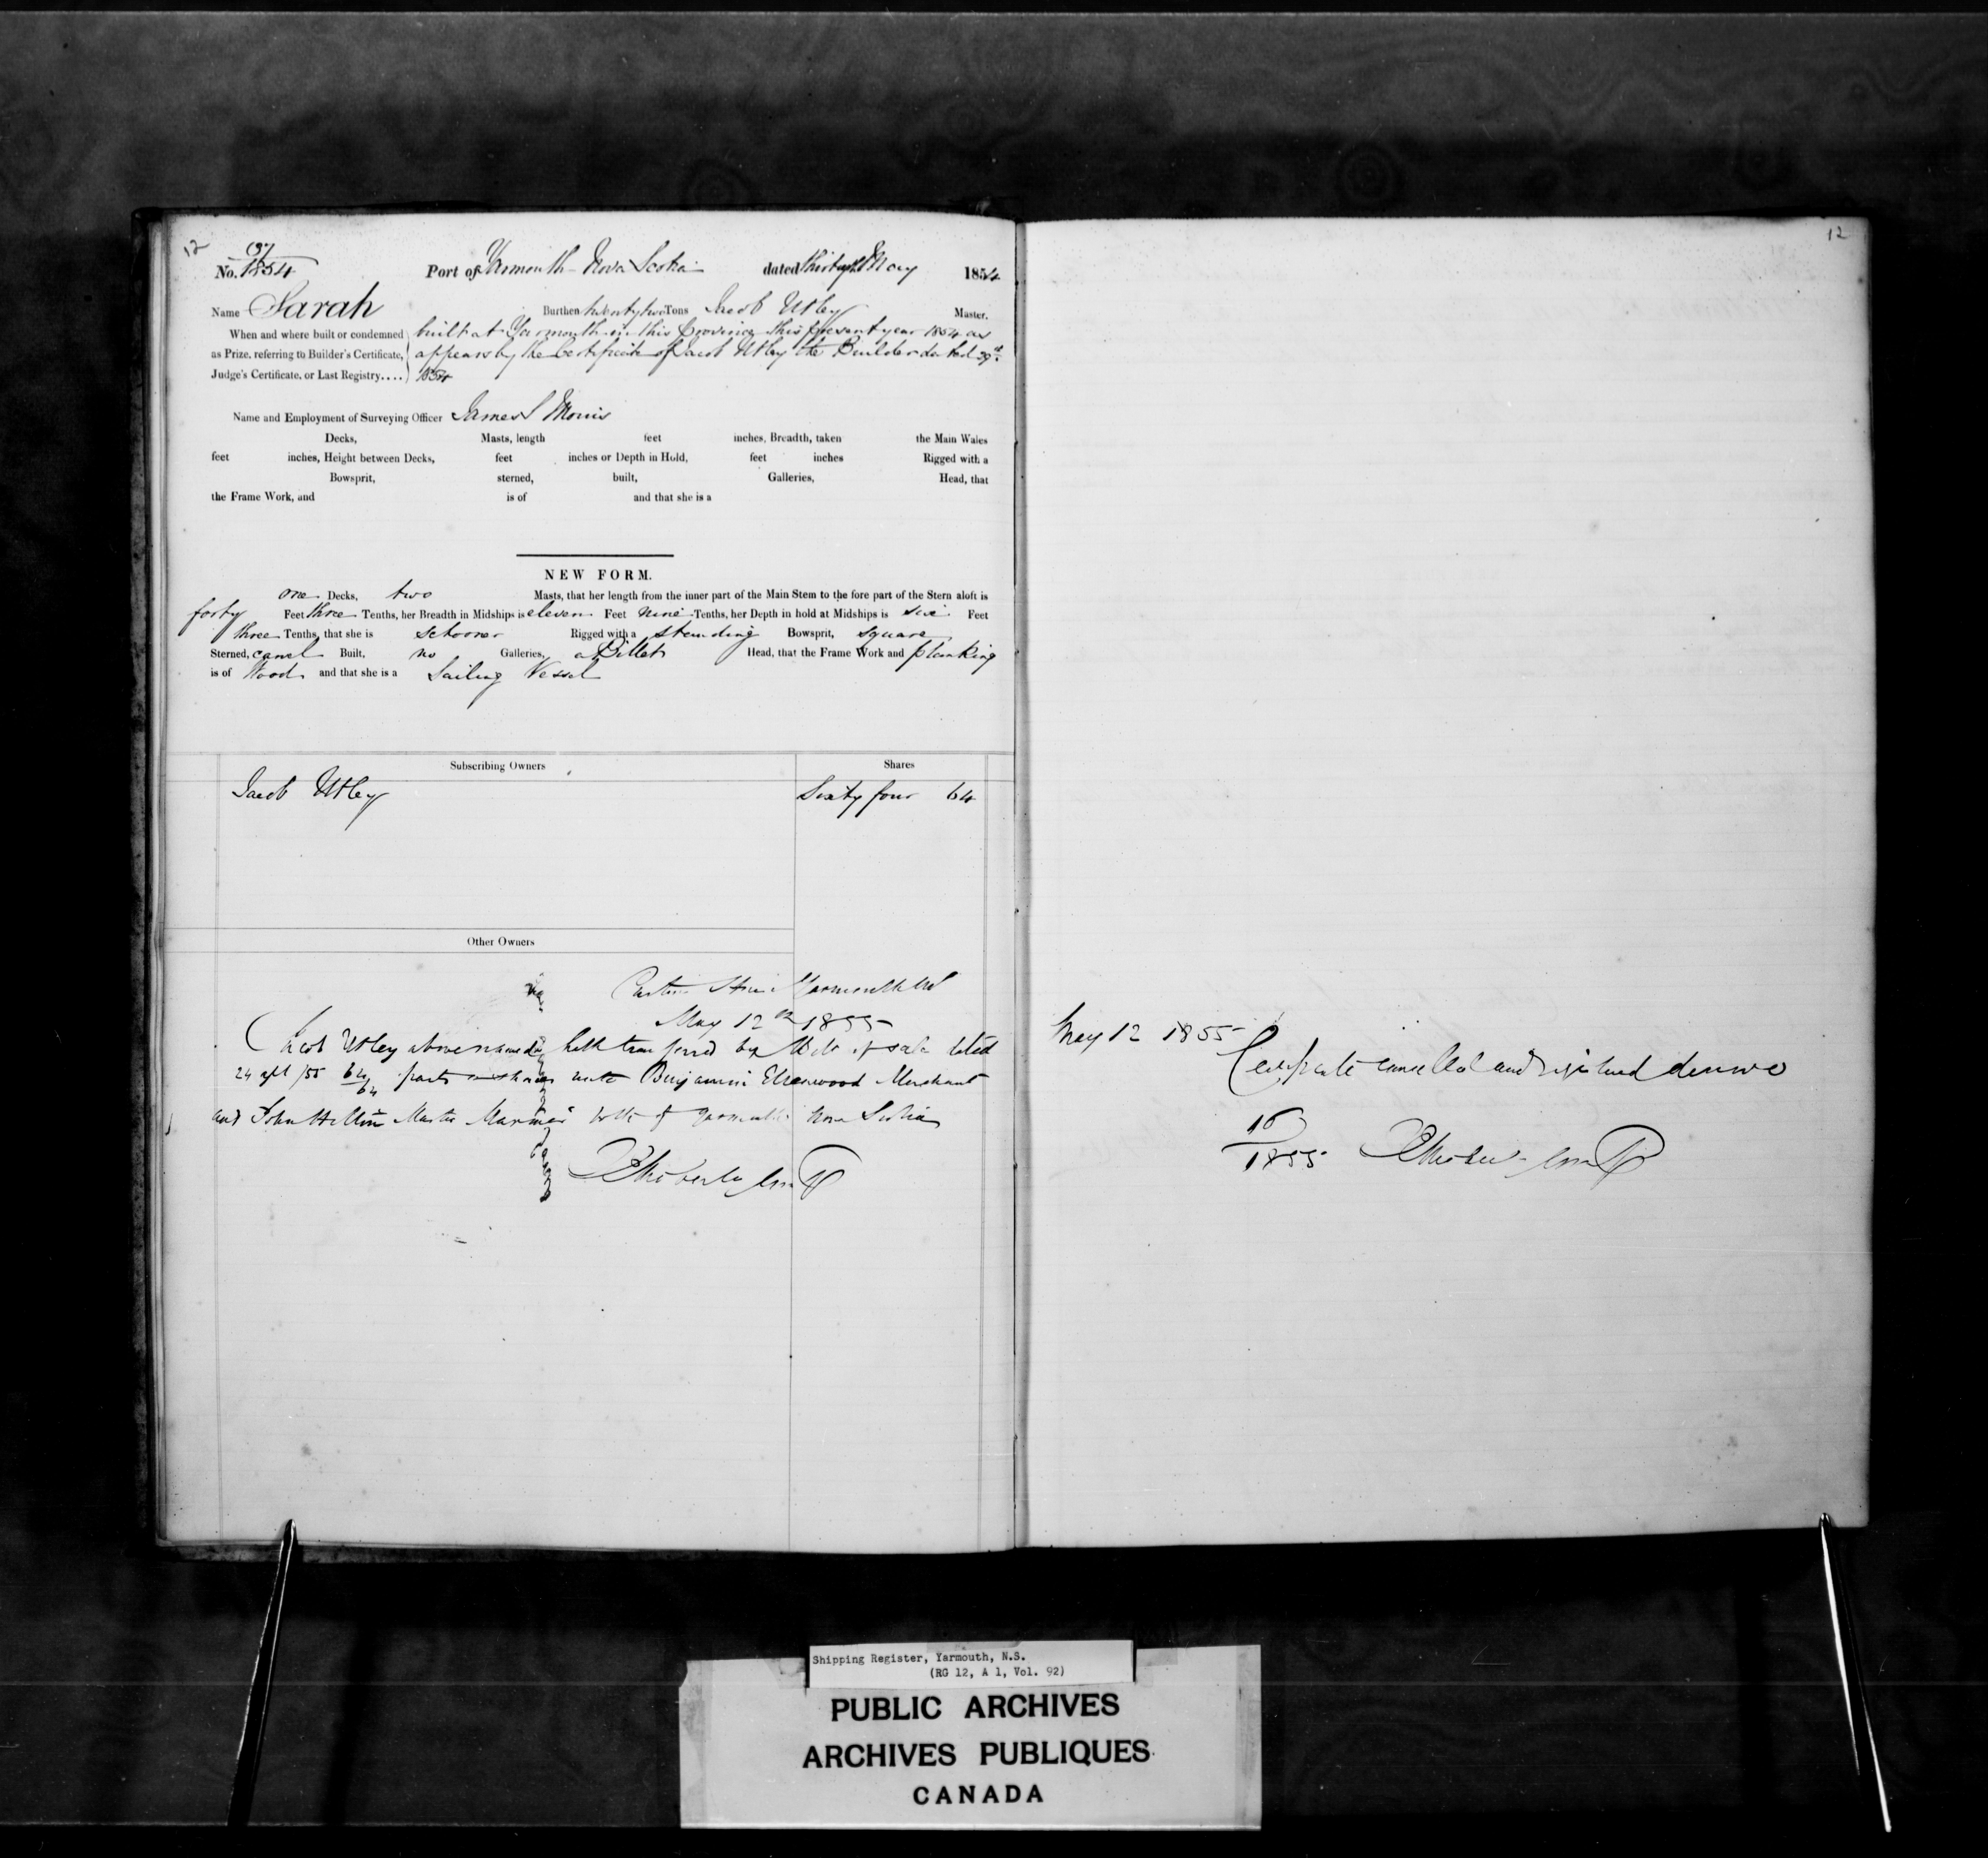 12
No. 1854 Port of Yarmouth Nova Scotia dated Thirtyth May 1854
Name Sarah Burthen twenty two Tons Jacob Utley Master.
When and where built or condemned as Prize, referring to Builder's Certificate, Judge's Certificate, or Last Registry....
built at Yarmouth in this Province this present year 1854 as
appears by the Certificate of Jacob Utley the Builder dated 29th
1854
Name and Employment of Surveying Officer James S Morris
Decks, Masts, length feet inches, Breadth, taken the Main Wales
feet inches, Height between Decks, feet inches or Depth in Hold, feet inches Rigged with a
Bowsprit, sterned, built, Galleries, Head, that
the Frame Work, and is of and that she is a
NEW FORM.
one Decks, two Masts, that her length from the inner part of the Main Stem to the fore part of the Stern aloft is
forty Feet three Tenths, her Breadth in Midships is eleven Feet nine Tenths, her Depth in hold at Midships is six Feet
three Tenths, that she is schooner Rigged with a standing Bowsprit, square
Sterned, carvel Built, no Galleries, a Billet Head, that the Frame Work and planking
is of Wood and that she is a Sailing Vessel
Subscribing Owners Shares
Jacob Utley Sixty four 64
Other Owners
Yarmouth NS
May 12th 1855
Jacob Utley above named hath transferred by Bill of sale dated
24 apl /55 64/64 parts or shares unto Benjamin Ellenwood Merchant
and John Hilton Master Mariner both of Yarmouth Nova Scotia
12
May 12 1855
Certificate cancelled and registered denovo
16
1855
Shipping Register, Yarmouth, N.S.
(RG 12, A 1, Vol. 92)
PUBLIC ARCHIVES
ARCHIVES PUBLIQUES
CANADA